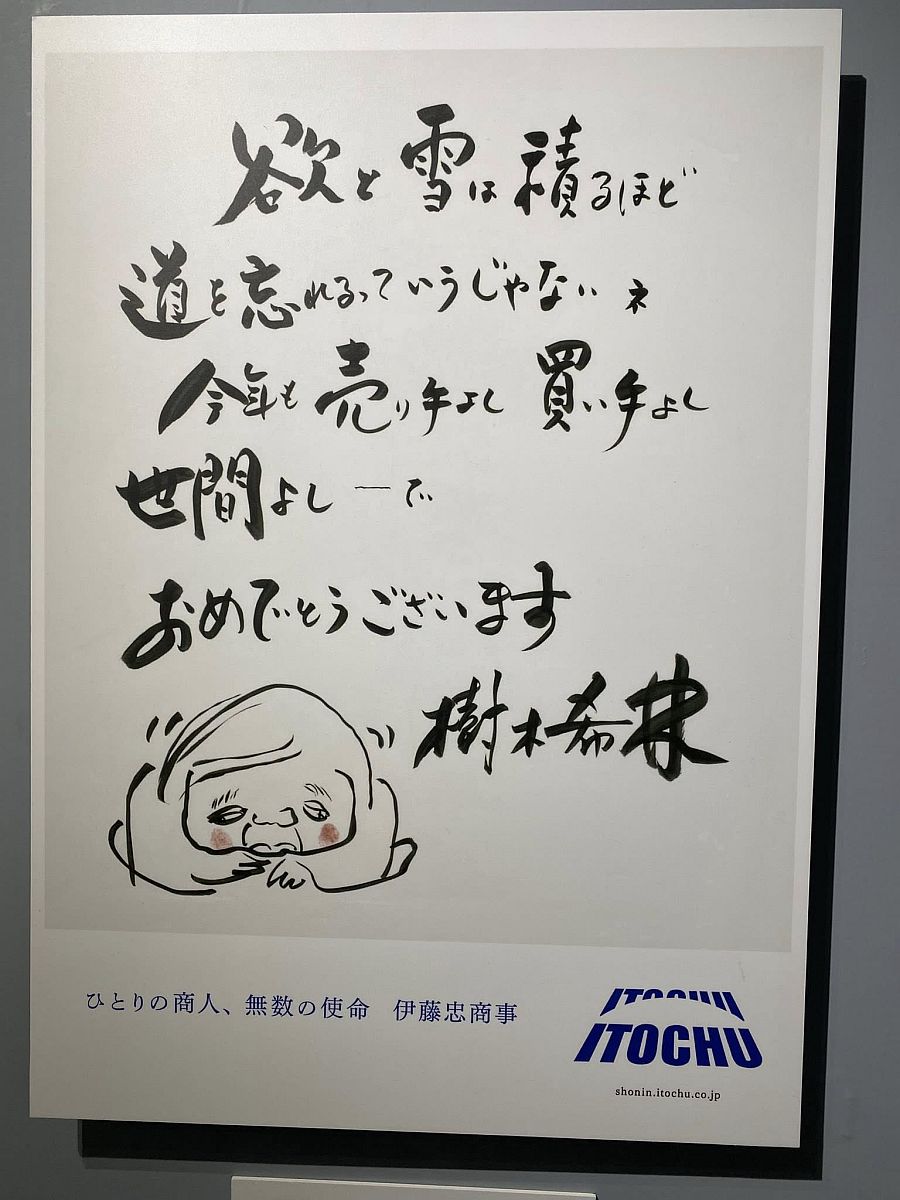 欲と雪は積るほど
道を忘れるっていうじゃない ネ
今年も売り手よし 買い手よし
世間よし ─で
おめでとうございます
樹木希林
ひとりの商人、無数の使命 伊藤忠商事
ITOCHU
ITOCHU
shonin.itochu.co.jp